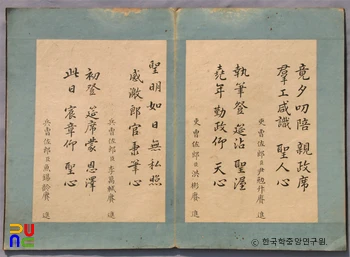 竟夕叨陪 親政席
羣工咸識 聖人心
吏曹佐郎臣尹勉升賡 進
執筆登筵沾 聖渥
堯年勤政仰 天心
吏曹佐郎臣洪彬賡 進
聖明如日無私照
感激郎官秉筆心
兵曹佐郎臣李萬軾賡 進
初登 筵席蒙 恩澤
此日 宸章仰 聖心
兵曹佐郎臣魚錫齡賡 進
© 한국학중앙연구원